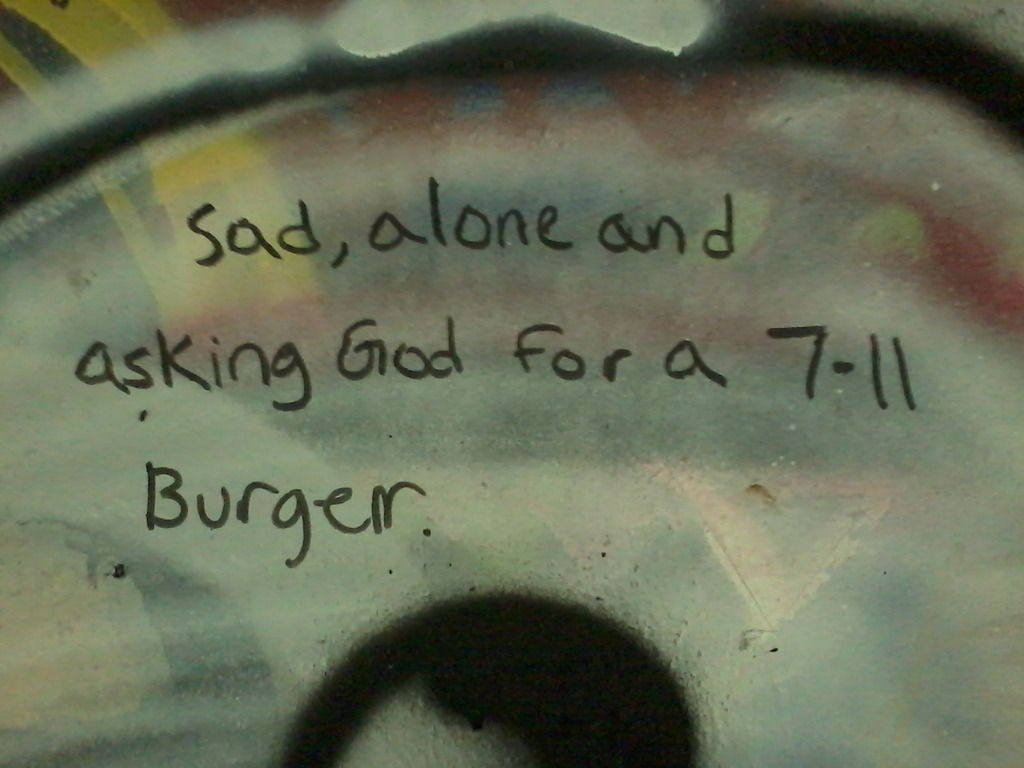 Sad, alone and
asking God for a 7-11
Burger.